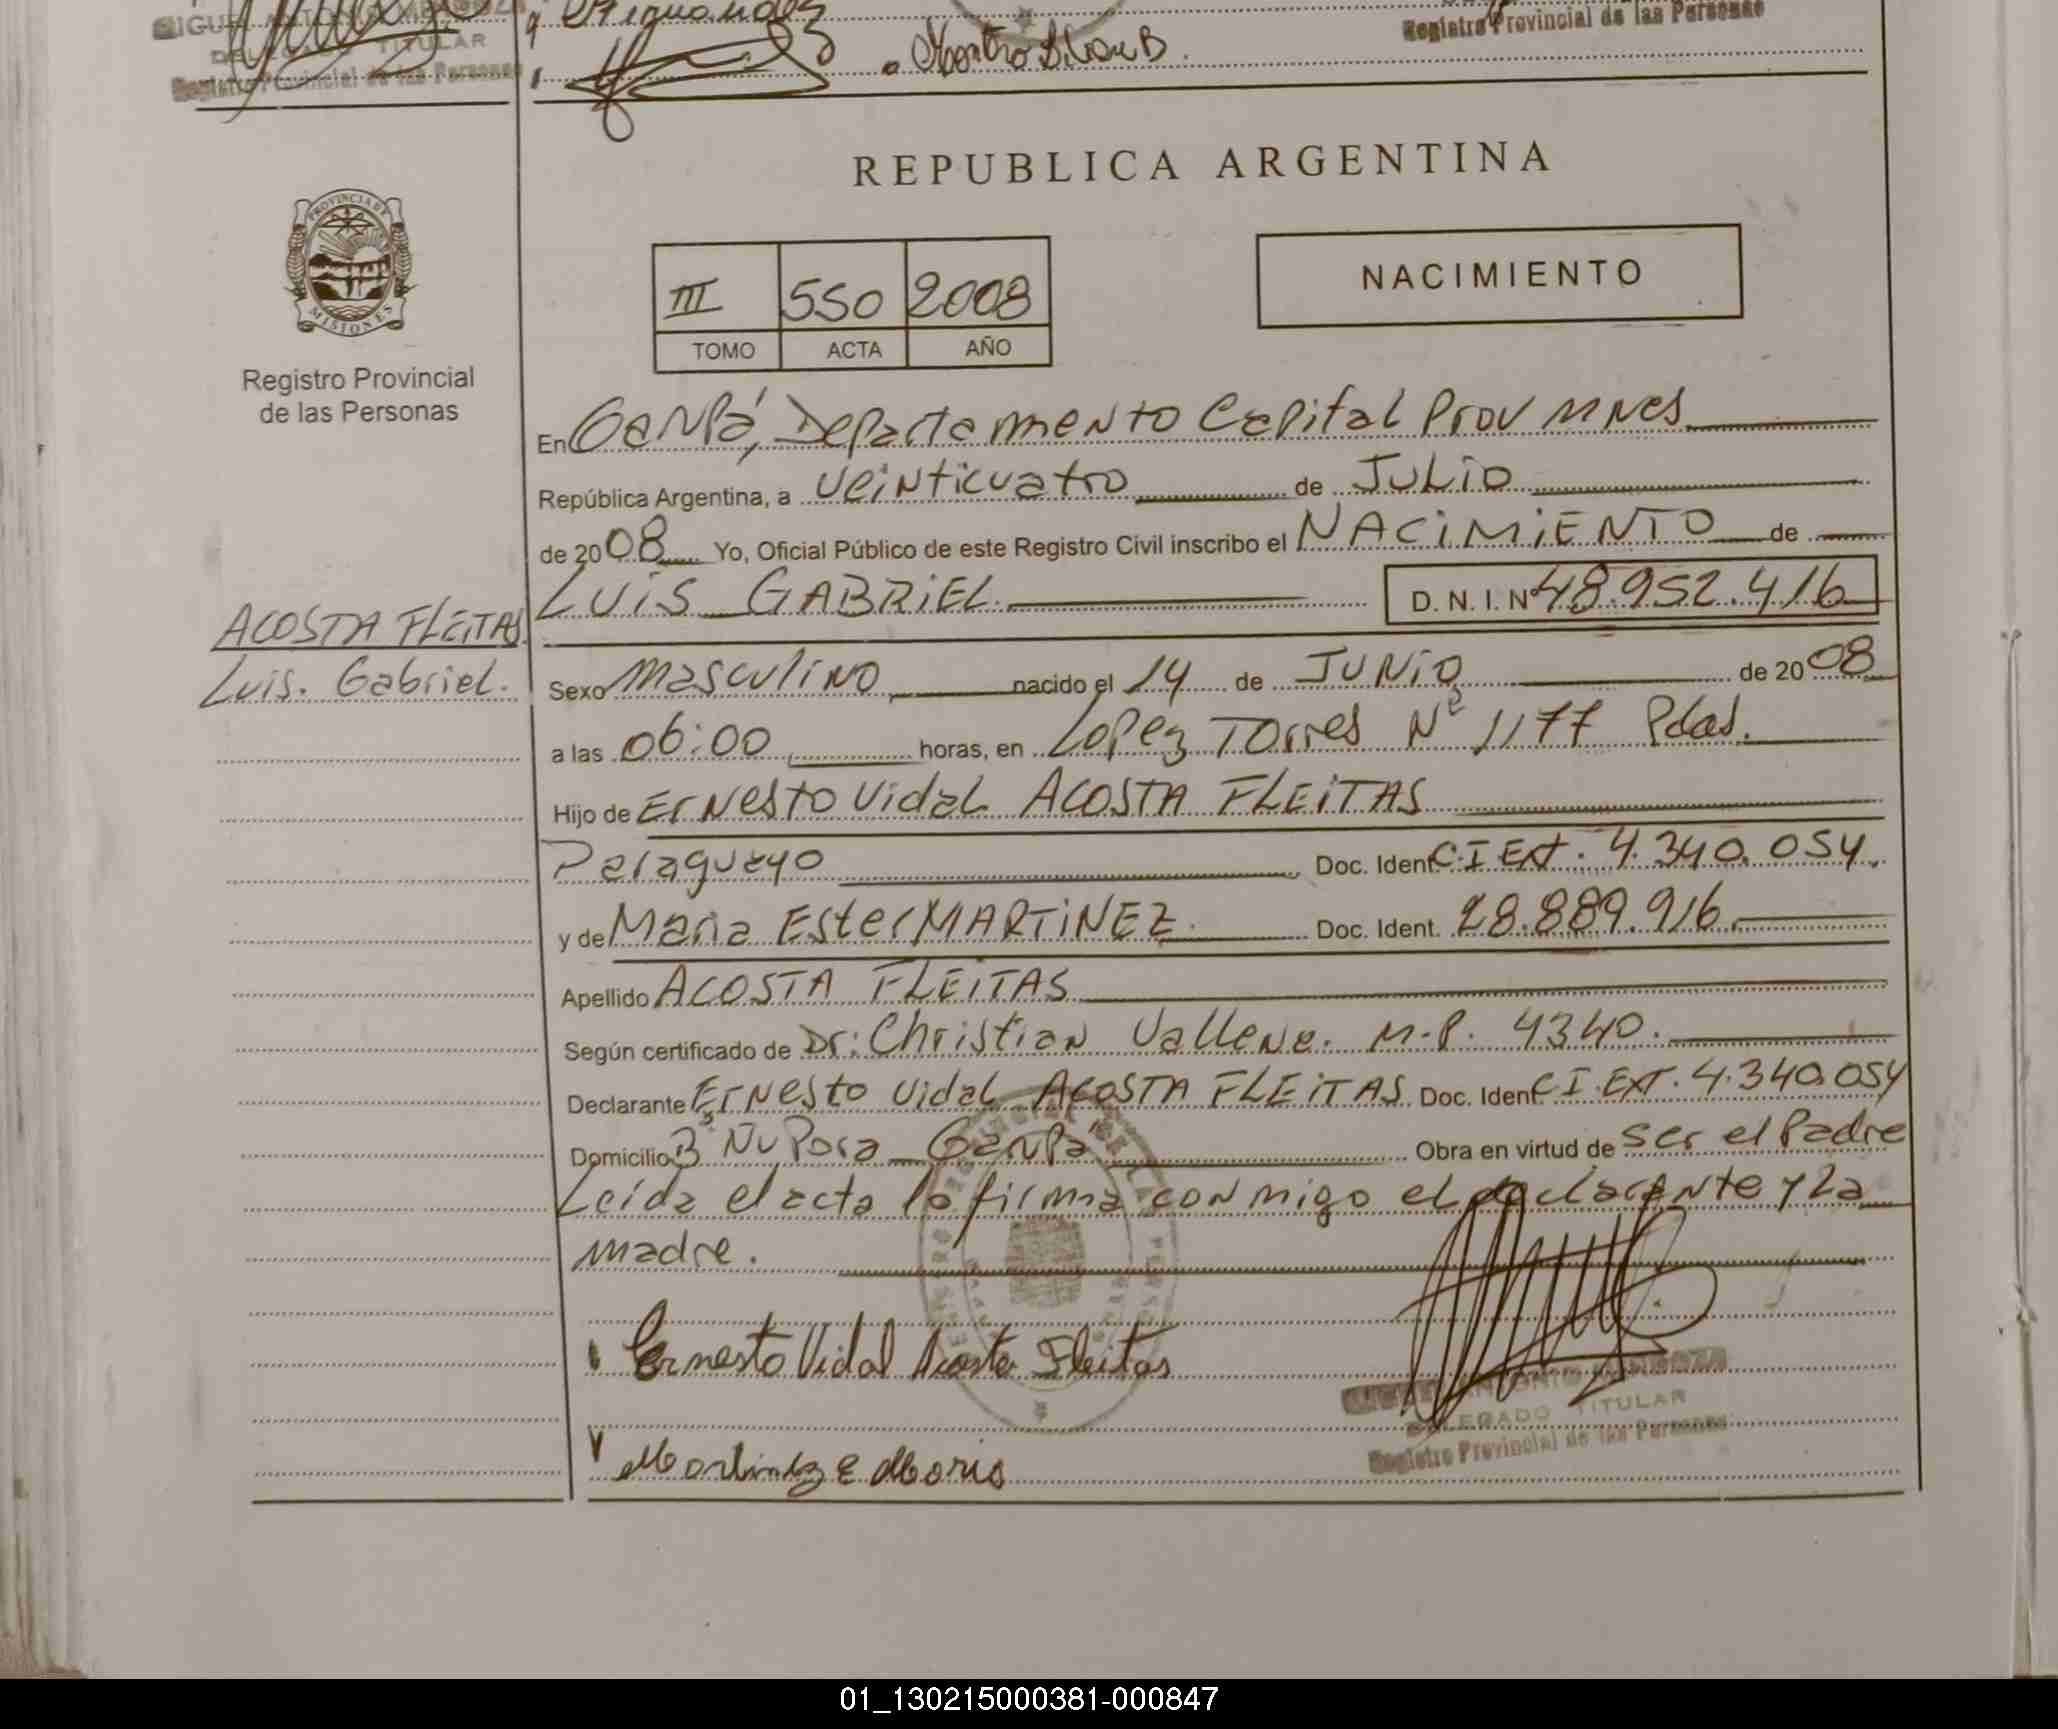 DELEGADO TITULAR
Registro Provincial de las Personas
Registro Provincial de las Personas
REPUBLICA ARGENTINA
PROVINCIA DE MISIONES
Registro Provincial
de las Personas
III 550 2008
TOMO ACTA AÑO
NACIMIENTO
En Garupá, Departamento Capital Prov Mnes
República Argentina, a veinticuatro de JULIO
de 2008 Yo, Oficial Público de este Registro Civil inscribo el NACIMIENTO de
LUIS GABRIEL D. N. I. Nº 48.952.416
ACOSTA FLEITAS
Luis. Gabriel.
Sexo Masculino nacido el 14 de JUNIO de 2008
a las 06:00 horas, en Lopez Torres Nº 1177 Pdas.
Hijo de Ernesto Vidal ACOSTA FLEITAS
Paraguayo Doc. Ident. C.I Ext. 4.340.054.
y de Maria Ester MARTINEZ. Doc. Ident. 28.889.916.
Apellido ACOSTA FLEITAS
Según certificado de Dr: Christian Vallene. M.P. 4340.
Declarante Ernesto Vidal ACOSTA FLEITAS Doc. Ident. C I. EXT. 4.340.054
Domicilio Bº Ñu Pora Garupá Obra en virtud de ser el Padre
Leida el acta la firma conmigo el declarante y La
madre.
Ernesto Vidal Acosta Fleitas
DELEGADO TITULAR
Registro Provincial de las Personas
Martinez E Maria
01_130215000381-000847